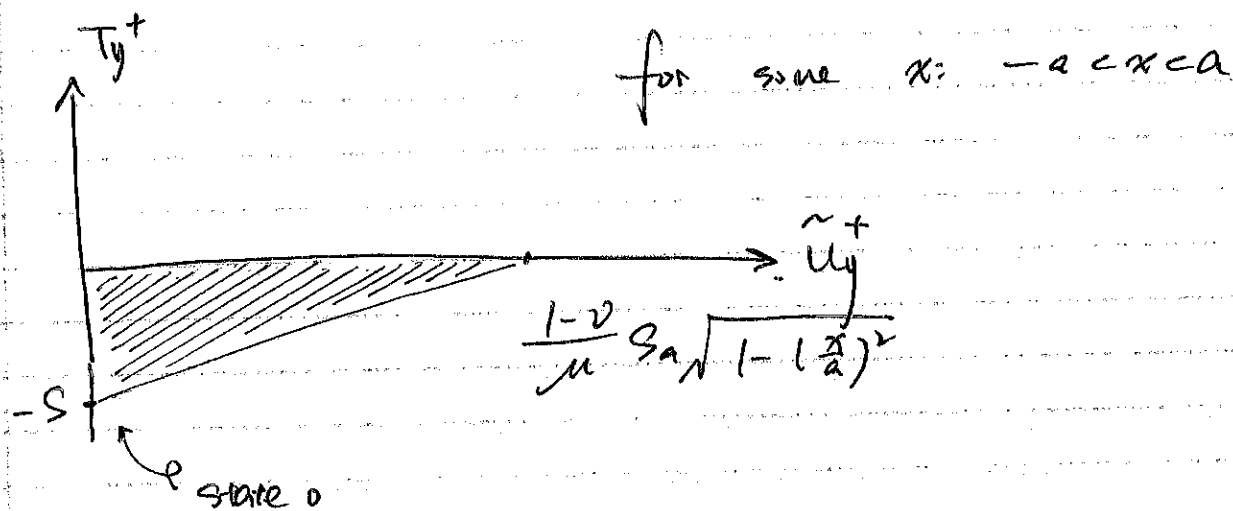 Ty+
for some x: -a < x < a
ũy+
1-ν/μ Sa√1-(x/a)²
-S
state 0